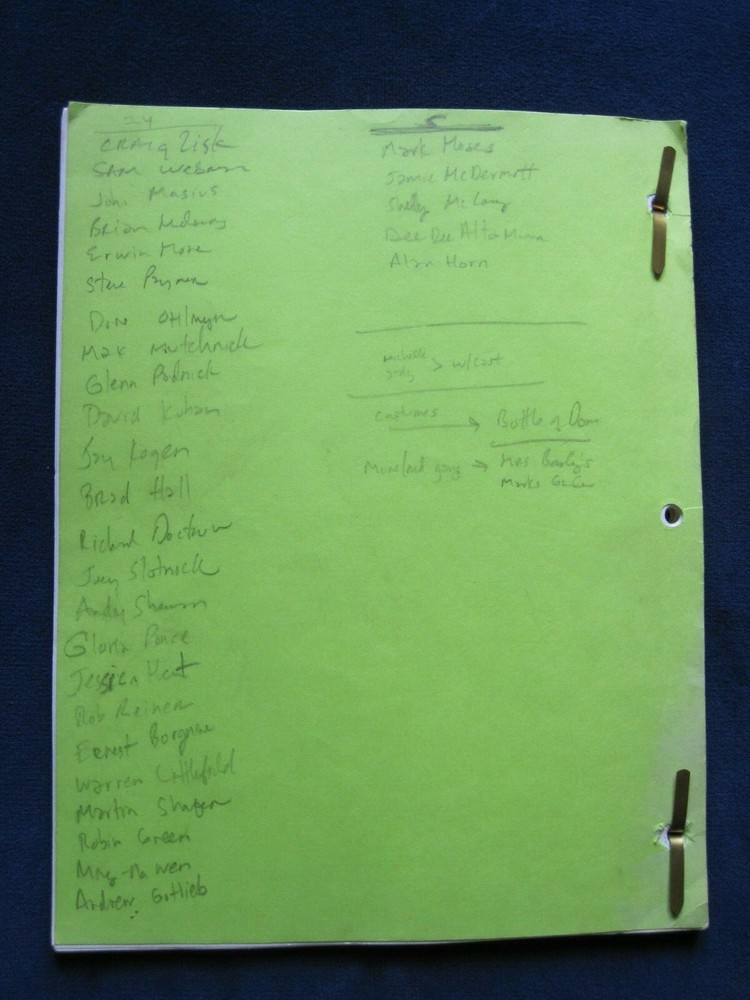 24
CRAIG Zisk
SAM Weisman
John Masius
Brian
Erwin More
Steve Paymer
Don Ohlmyer
Max Mutchnick
Glenn Padnick
David Kohan
Jay Kogen
Brad Hall
Richard Doctorow
Joey Slotnick
Andy
Gloria Ponce
Jessica
Rob Reiner
Ernest Borgnine
Warren Littlefield
Martin Shafer
Robin Green
Ming-Na Wen
Andrew Gottlieb
5
Mark Moses
Jamie McDermott
Shelly McCrory
Dee Dee
Alan Horn
michelle
> w/cast
costumes → Bottle of Dom
→ Mrs Beasly's
Marks